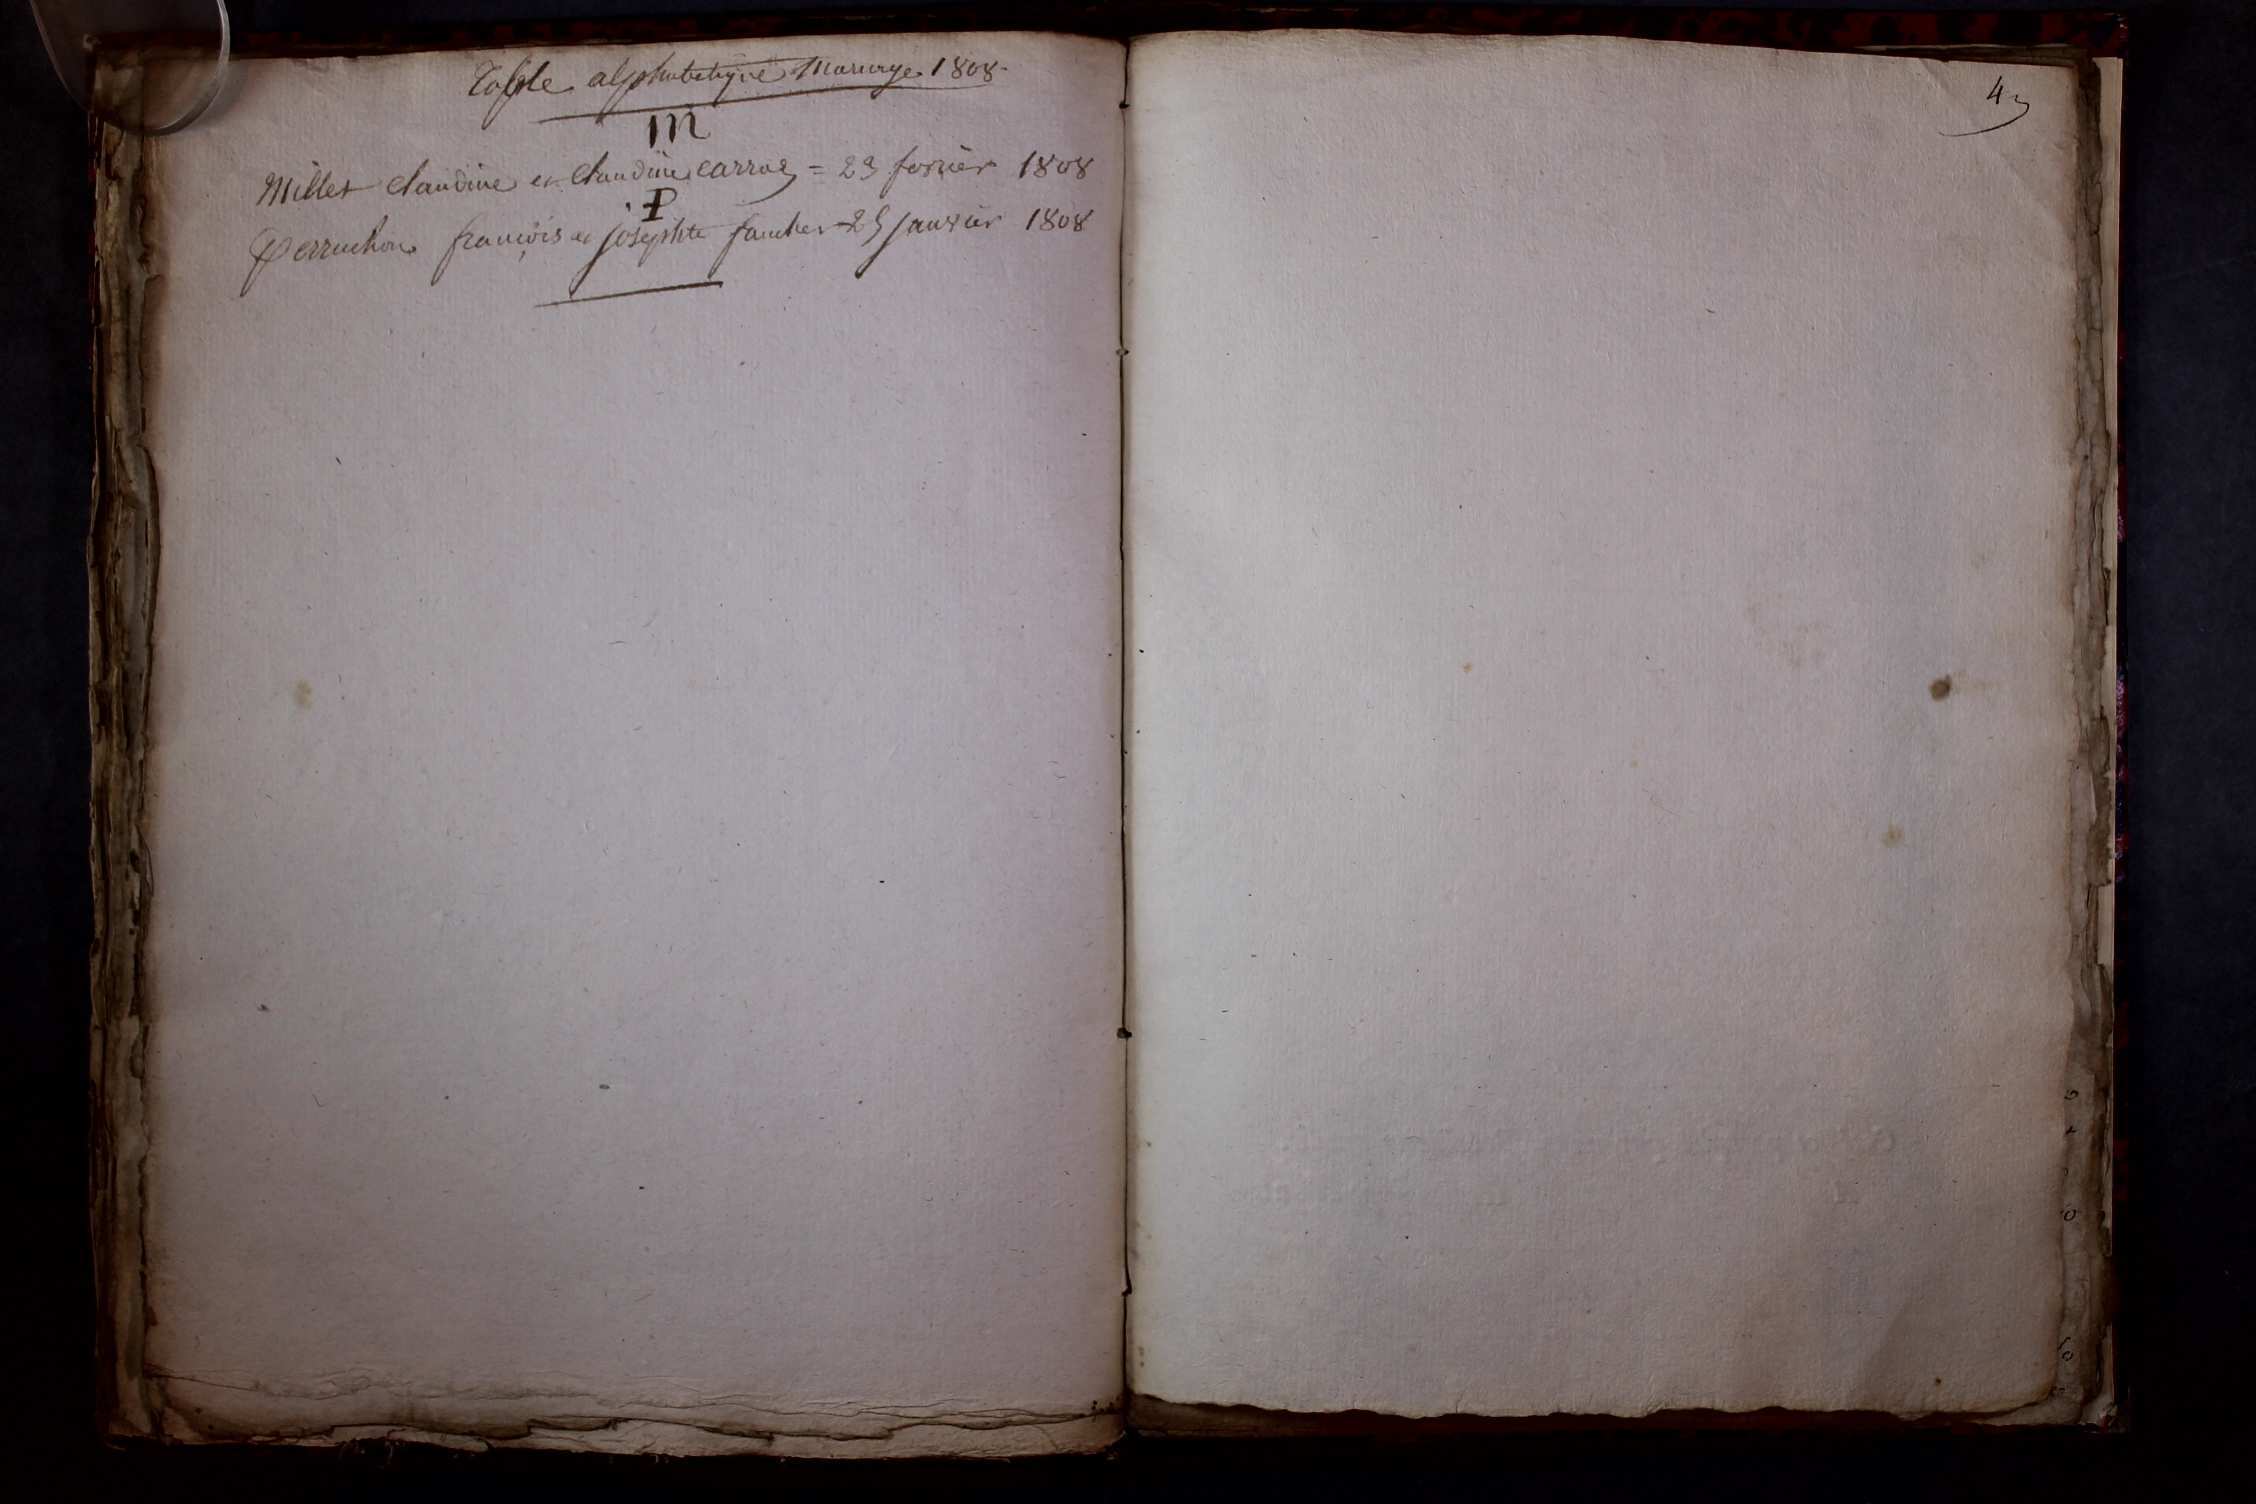 Table alphabetique Mariage 1808
M
Millet Claudine et Claudine carraz = 23 fevrier 1808
P
Perruchon françois et Josephte faucher 25 Janvier 1808
4